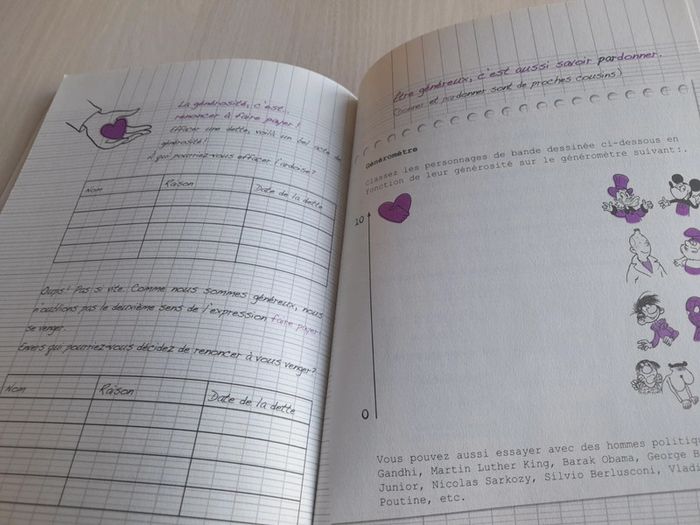 La générosité, c'est...
renoncer à faire payer !
Effacer une dette, voilà un bel acte de
générosité !
A qui pourriez-vous effacer l'ardoise ?
Nom Raison Date de la dette
Oups ! Pas si vite. Comme nous sommes généreux, nous
n'oublions pas le deuxième sens de l'expression faire payer :
se venger.
Envers qui pourriez-vous décidez de renoncer à vous venger ?
Nom Raison Date de la dette
Etre généreux, c'est aussi savoir pardonner.
(Donner et pardonner sont de proches cousins)
Généromètre
Classez les personnages de bande dessinée ci-dessous en
fonction de leur générosité sur le généromètre suivant :
10
0
Vous pouvez aussi essayer avec des hommes politiq
Gandhi, Martin Luther King, Barak Obama, George B
Junior, Nicolas Sarkozy, Silvio Berlusconi, Vladi
Poutine, etc.